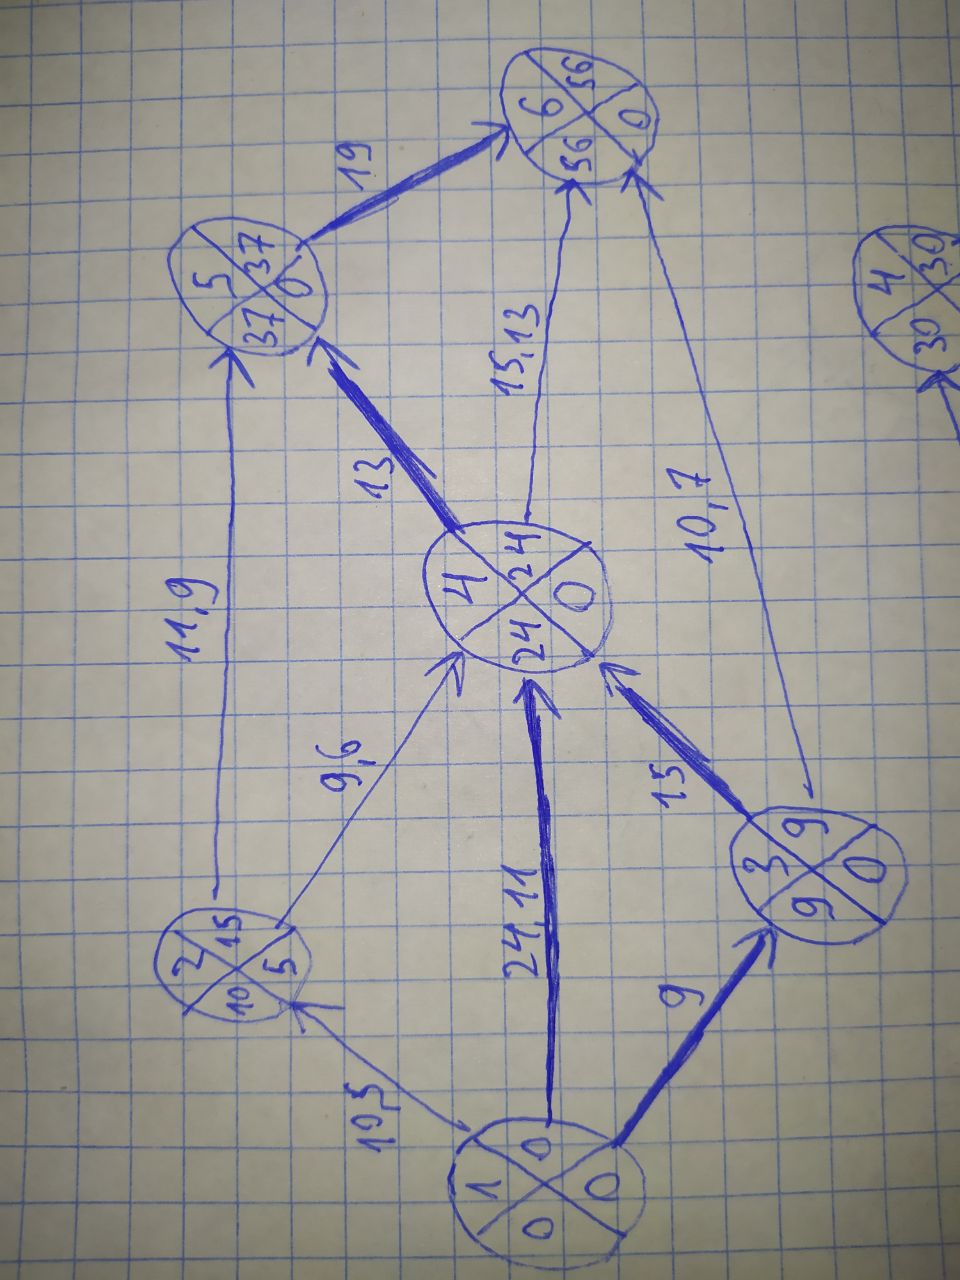 2
10 15
5
11,9
5
37 37
0
10,5
9,6
13
19
1
0 0
0
24,11
4
24 24
0
15,13
6
56 56
0
9
15
10,7
3
9 9
0
4
30 30